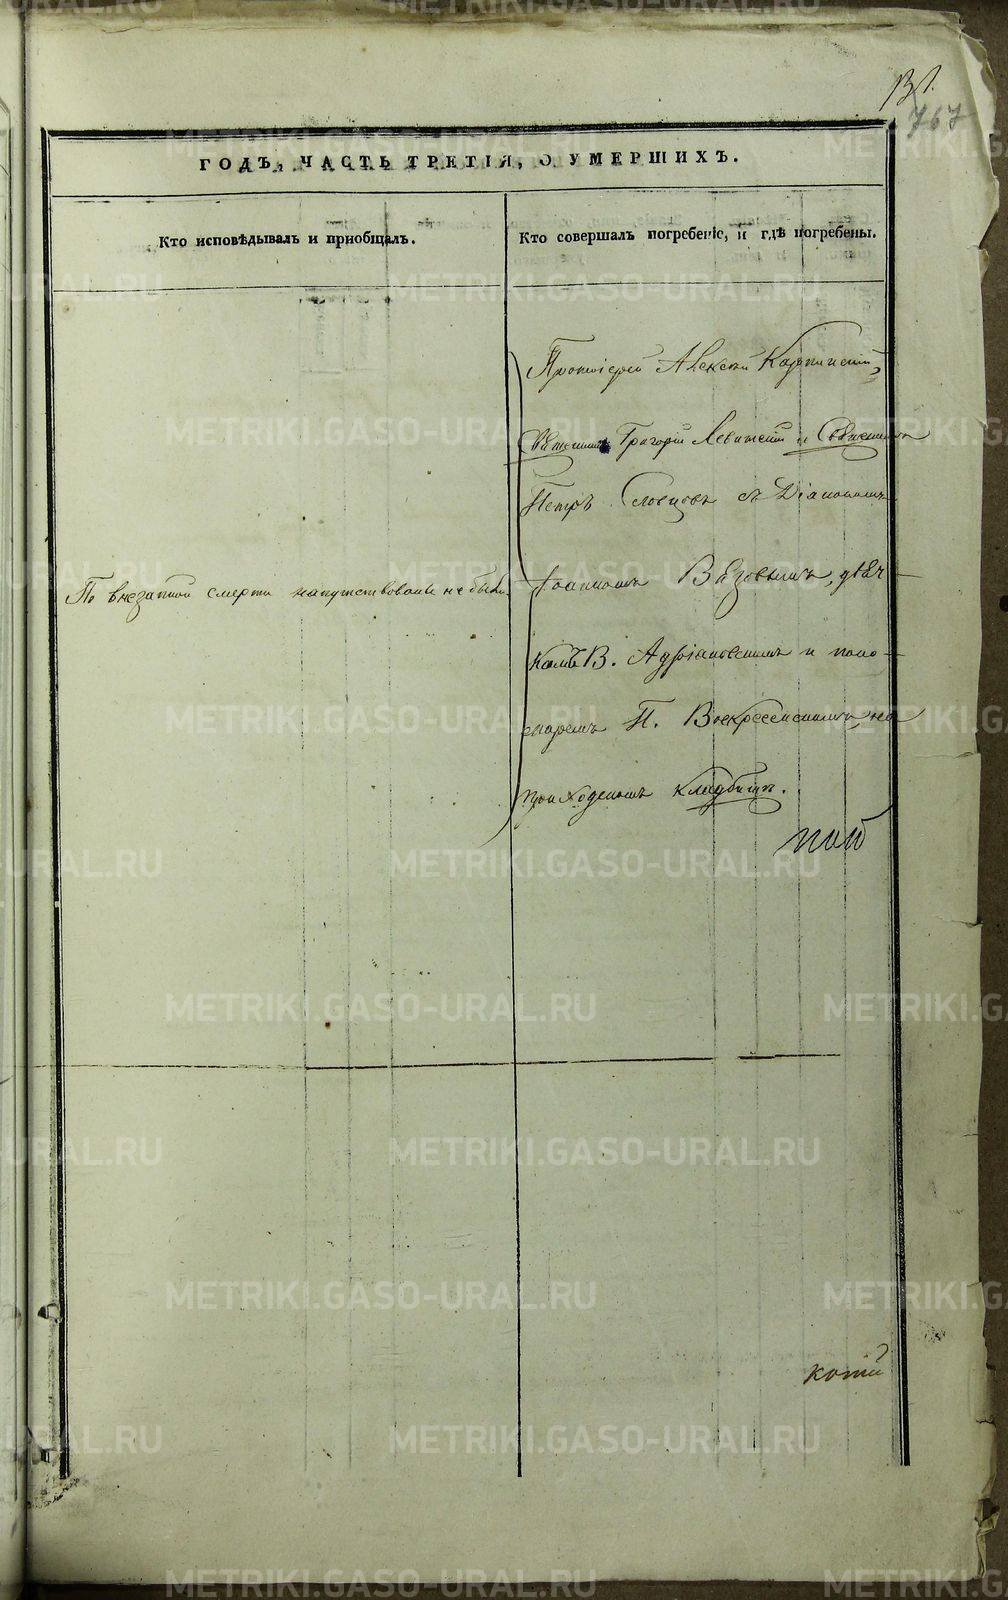 767
ГОДЪ, ЧАСТЬ ТРЕТІЯ, О УМЕРШИХЪ.
Кто исповѣдывалъ и пріобщалъ.
Кто совершалъ погребеніе, и гдѣ погребены.
По внезапной смерти напутствованы не были.
Протоіерей Алексѣй Карпинскій,
Священникъ Григорій Левитскій и Священникъ
Петръ Словцовъ съ Діакономъ
Іоанномъ Вязовымъ, дьяч-
комъ В. Адріановскимъ и поно-
маремъ П. Воскресенскимъ, на
приходскомъ кладбищѣ.
METRIKI.GASO-URAL.RU